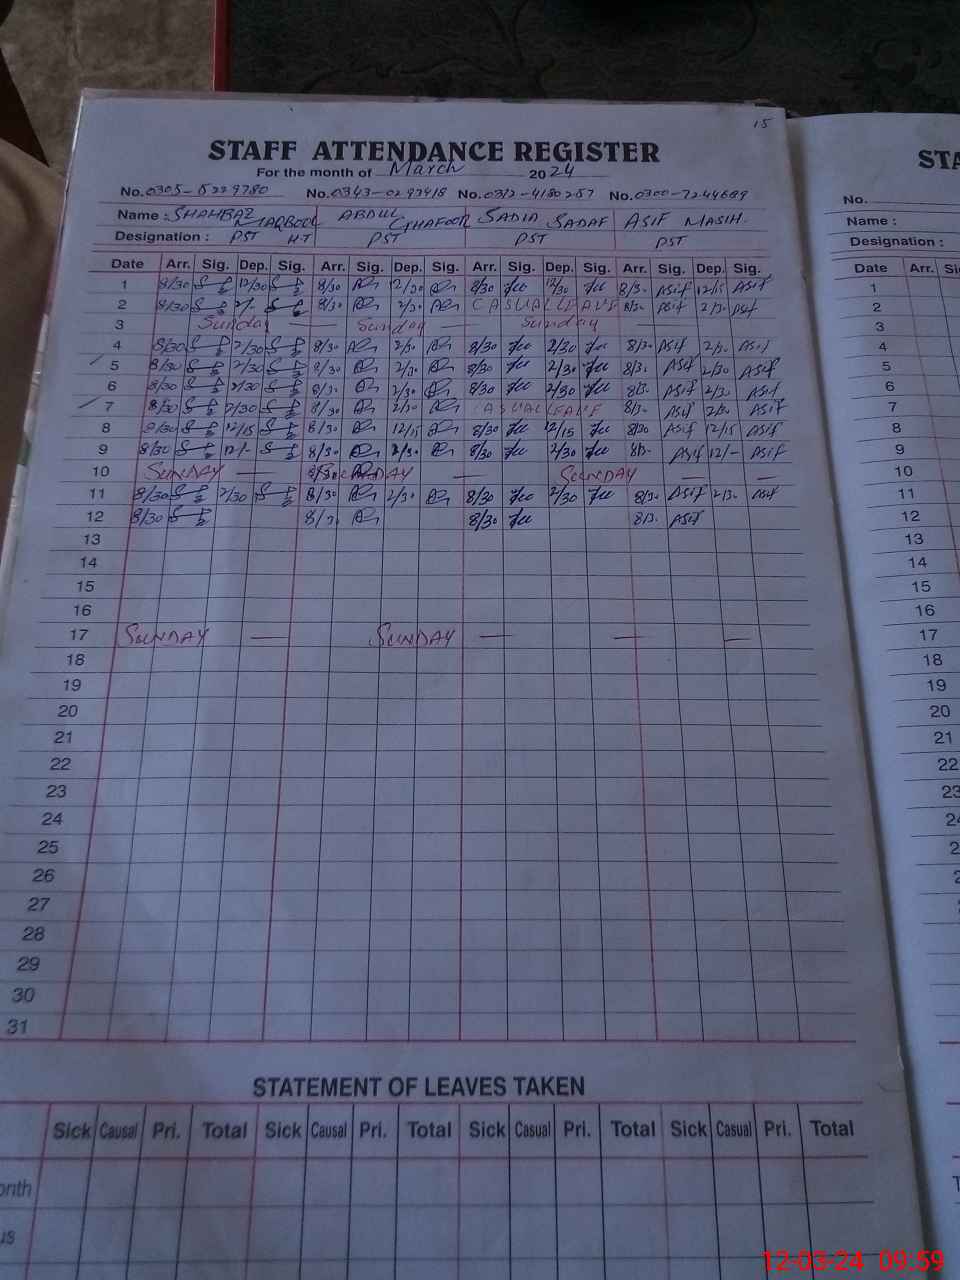 15
STAFF ATTENDANCE REGISTER
For the month of March 2024
No. 0305-5229780 No. 0343-0293418 No. 0312-4180257 No. 0300-7244689
Name : SHAHBAZ MAQBOOL ABDUL GHAFOOR SADIA SADAF ASIF MASIH.
Designation : PST H-T PST PST PST
Date Arr. Sig. Dep. Sig. Arr. Sig. Dep. Sig. Arr. Sig. Dep. Sig. Arr. Sig. Dep. Sig.
1 8/30 12/30 8/30 12/30 8/30 12/30 8/30 Asif 12/15 Asif
2 8/30 8/30 2/30 CASUAL LEAVE 8/30 Asif 2/30 Asif
3 Sunday — Sunday — Sunday
4 8/30 2/30 8/30 2/30 8/30 2/30 8/30 Asif 2/30 Asif
5 8/30 2/30 8/30 2/30 8/30 2/30 8/30 Asif 2/30 Asif
6 8/30 2/30 8/30 2/30 8/30 2/30 8/30 Asif 2/30 Asif
7 8/30 2/30 8/30 2/30 CASUAL LEAVE 8/30 Asif 2/30 Asif
8 8/30 12/15 8/30 12/15 8/30 12/15 8/30 Asif 12/15 Asif
9 8/30 12/- 8/30 2/30 8/30 2/30 8/30 Asif 12/- Asif
10 SUNDAY — SUNDAY — SUNDAY — —
11 8/30 2/30 8/30 2/30 8/30 2/30 8/30 Asif 2/30 Asif
12 8/30 8/30 8/30 8/30 Asif
13
14
15
16
17 SUNDAY — SUNDAY — — —
18
19
20
21
22
23
24
25
26
27
28
29
30
31
STATEMENT OF LEAVES TAKEN
Sick Causal Pri. Total Sick Causal Pri. Total Sick Casual Pri. Total Sick Casual Pri. Total
onth
us
STA
No.
Name :
Designation :
Date Arr. Si
1
2
3
4
5
6
7
8
9
10
11
12
13
14
15
16
17
18
19
20
21
22
23
24
2
2
2
T
12-03-24 09:59